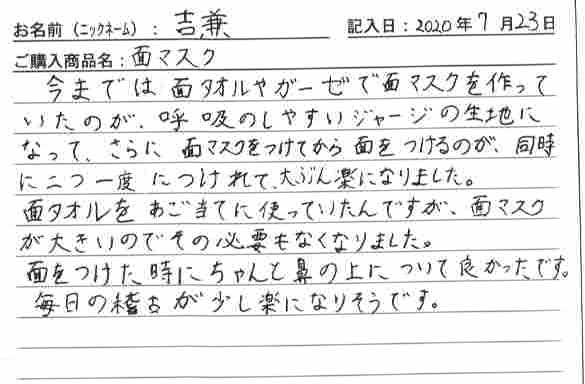 お名前（ニックネーム）：吉兼 記入日：2020年7月23日
ご購入商品名：面マスク
今までは面タオルやガーゼで面マスクを作って
いたのが、呼吸のしやすいジャージの生地に
なって、さらに面マスクをつけてから面をつけるのが、同時
に二つ一度につけれて、大ぶん楽になりました。
面タオルをあご当てに使っていたんですが、面マスク
が大きいのでその必要もなくなりました。
面をつけた時にちゃんと鼻の上について良かったです。
毎日の稽古が少し楽になりそうです。